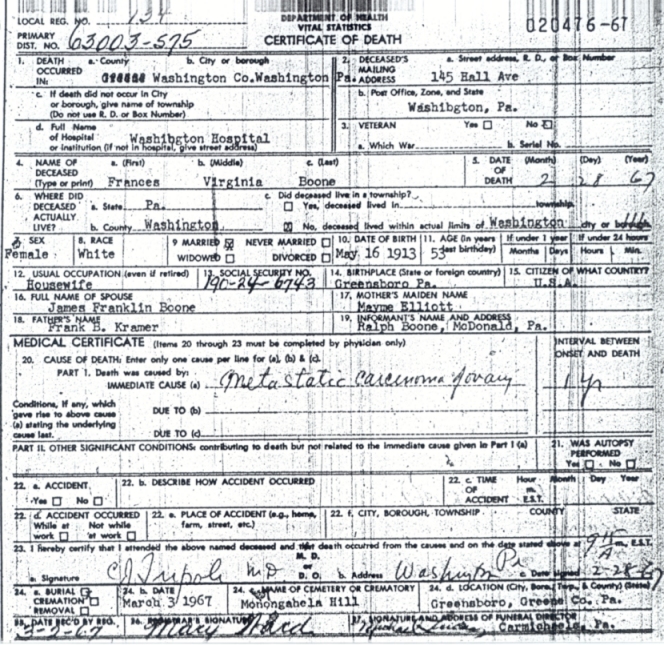 DEPARTMENT OF HEALTH
LOCAL REG. NO. 134 VITAL STATISTICS 020476-67
PRIMARY DIST. NO. 63003-575 CERTIFICATE OF DEATH
1. DEATH OCCURRED IN: a. County b. City or borough
Washington Co. Washington Pa.
2. DECEASED'S MAILING ADDRESS a. Street address, R. D., or Box Number
145 Hall Ave
c. If death did not occur in City or borough, give name of township (Do not use R. D. or Box Number)
b. Post Office, Zone, and State
Washibgton, Pa.
d. Full Name of Hospital or institution (If not in hospital, give street address)
Washibgton Hospital
3. VETERAN Yes No
a. Which War b. Serial No.
4. NAME OF DECEASED (Type or print) a. (First) b. (Middle) c. (Last)
Frances Virginia Boone
5. DATE OF DEATH (Month) (Day) (Year)
2 28 67
6. WHERE DID DECEASED ACTUALLY LIVE? a. State Pa.
b. County Washington
c. Did deceased live in a township?
Yes, deceased lived in township.
No, deceased lived within actual limits of Washington city or boro.
7. SEX 8. RACE 9 MARRIED NEVER MARRIED 10. DATE OF BIRTH 11. AGE (In years last birthday) If under 1 year If under 24 hours
Female White WIDOWED DIVORCED May 16 1913 53 Months Days Hours Min.
12. USUAL OCCUPATION (even if retired) 13. SOCIAL SECURITY NO. 14. BIRTHPLACE (State or foreign country) 15. CITIZEN OF WHAT COUNTRY?
Housewife 190-24-6743 Greensboro Pa. U.S.A.
16. FULL NAME OF SPOUSE 17. MOTHER'S MAIDEN NAME
James Franklin Boone Mayme Elliott
18. FATHER'S NAME 19. INFORMANT'S NAME AND ADDRESS
Frank B. Kramer Ralph Boone, McDonald, Pa.
MEDICAL CERTIFICATE (Items 20 through 23 must be completed by physician only) INTERVAL BETWEEN ONSET AND DEATH
20. CAUSE OF DEATH: Enter only one cause per line for (a), (b) & (c).
PART 1. Death was caused by:
IMMEDIATE CAUSE (a) Metastatic carcinoma of ovary 1 yr
Conditions, if any, which gave rise to above cause (a) stating the underlying cause last.
DUE TO (b)
DUE TO (c)
PART II. OTHER SIGNIFICANT CONDITIONS: contributing to death but not related to the immediate cause given in Part I (a)
21. WAS AUTOPSY PERFORMED
Yes No
22. a. ACCIDENT 22. b. DESCRIBE HOW ACCIDENT OCCURRED 22. c. TIME OF ACCIDENT Hour Month Day Year
Yes No m. E.S.T.
22. d. ACCIDENT OCCURRED 22. e. PLACE OF ACCIDENT (e.g., home, farm, street, etc.) 22. f. CITY, BOROUGH, TOWNSHIP COUNTY STATE
While at work Not while at work
23. I hereby certify that I attended the above named deceased and that death occurred from the causes and on the date stated above at 9 15 A m., E.S.T.
M. D. or D. O.
a. Signature CJ Tripoli MD b. Address Washington Pa c. Date signed 2-28-67
24. a. BURIAL CREMATION REMOVAL 24. b. DATE 24. c. NAME OF CEMETERY OR CREMATORY 24. d. LOCATION (City, Boro, Twp. & County) (State)
March 3 1967 Monongahela Hill Greensboro, Greene Co., Pa.
25. DATE REC'D BY REG. 26. REGISTRAR'S SIGNATURE 27. SIGNATURE AND ADDRESS OF FUNERAL DIRECTOR
3-2-67 Mary Ward Carmichaels, Pa.